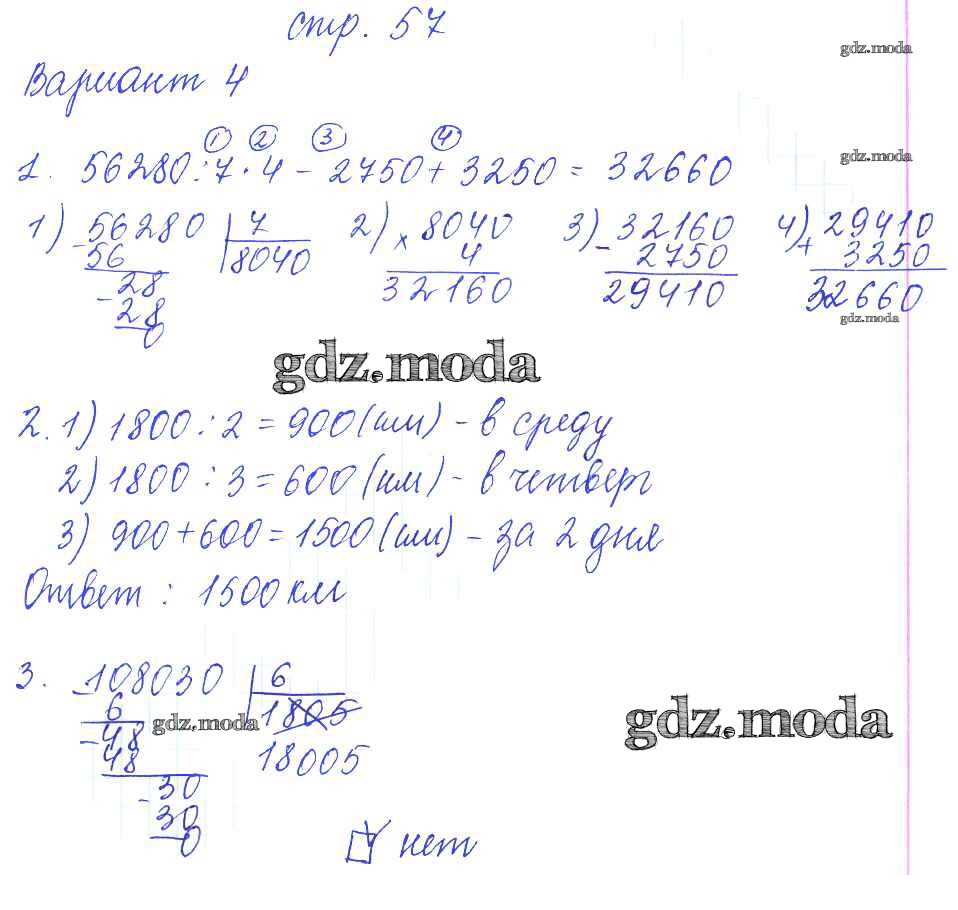 стр. 57
gdz.moda
Вариант 4
① ② ③ ④
1. 56280:7·4 - 2750 + 3250 = 32660
gdz.moda
1) 56280 | 7 2) × 8040 3) 32160 4) 29410
- 56 8040 4 - 2750 + 3250
- 28 32160 29410 32660
28
0
gdz.moda
gdz.moda
2. 1) 1800 : 2 = 900 (км) - в среду
2) 1800 : 3 = 600 (км) - в четверг
3) 900 + 600 = 1500 (км) - за 2 дня
Ответ : 1500 км
3. - 108030 | 6
6 1805
gdz.moda
gdz.moda
- 48 18005
48
- 30
30
0
нет